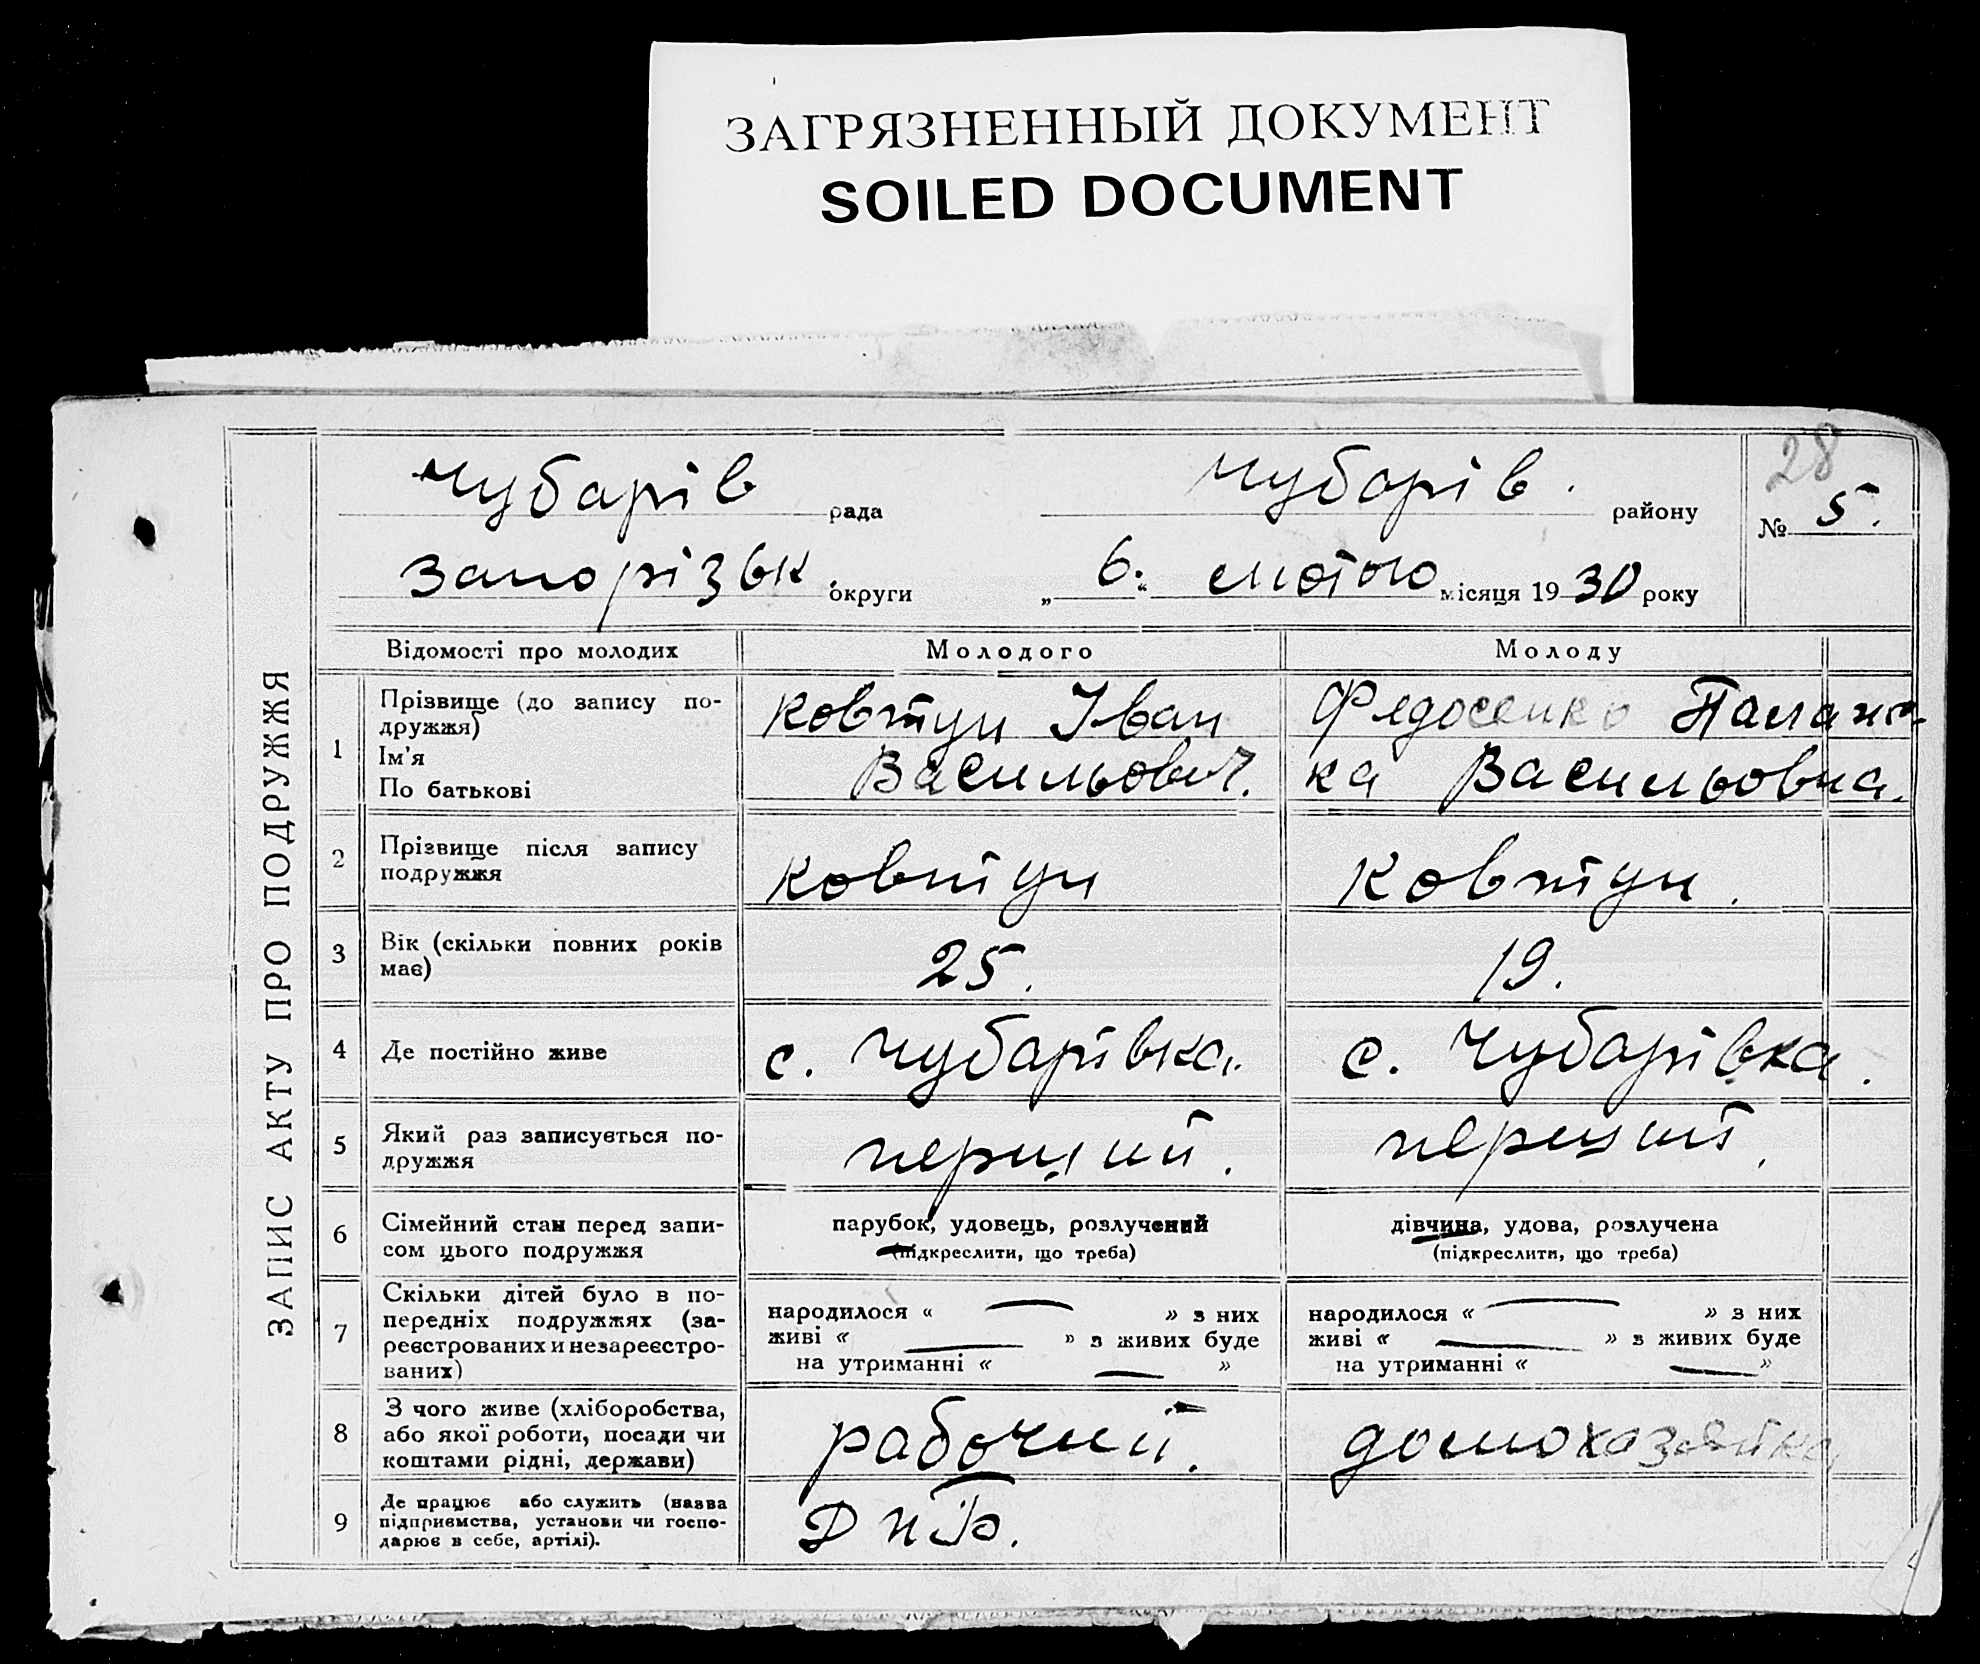 ЗАГРЯЗНЕННЫЙ ДОКУМЕНТ
SOILED DOCUMENT
28
ЗАПИС АКТУ ПРО ПОДРУЖЖЯ
Чубарів рада Чубарів. району № 5.
Запорізьк. округи „ 6. “ лютого місяця 1930 року
Відомості про молодих Молодого Молоду
1 Прізвище (до запису по-
дружжя)
Ім'я
По батькові
Ковтун Іван
Васильович.
Федосенко Палаж-
ка Васильовна.
2 Прізвище після запису
подружжя
Ковтун
Ковтун.
3 Вік (скільки повних років
має)
25.
19.
4 Де постійно живе
с. Чубарівка.
с. Чубарівка.
5 Який раз записується по-
дружжя
перший.
перший.
6 Сімейний стан перед запи-
сом цього подружжя
парубок, удовець, розлучений
(підкреслити, що треба)
дівчина, удова, розлучена
(підкреслити, що треба)
7 Скільки дітей було в по-
передніх подружжях (за-
реєстрованих и незареєстро-
ваних)
народилося « — » з них
живі « — » з живих буде
на утриманні « — »
народилося « — » з них
живі « — » з живих буде
на утриманні « — »
8 З чого живе (хліборобства,
або якої роботи, посади чи
коштами рідні, держави)
рабочий.
домохазяйка
9 Де працює або служить (назва
підприємства, установи чи госпо-
дарює в себе, артілі).